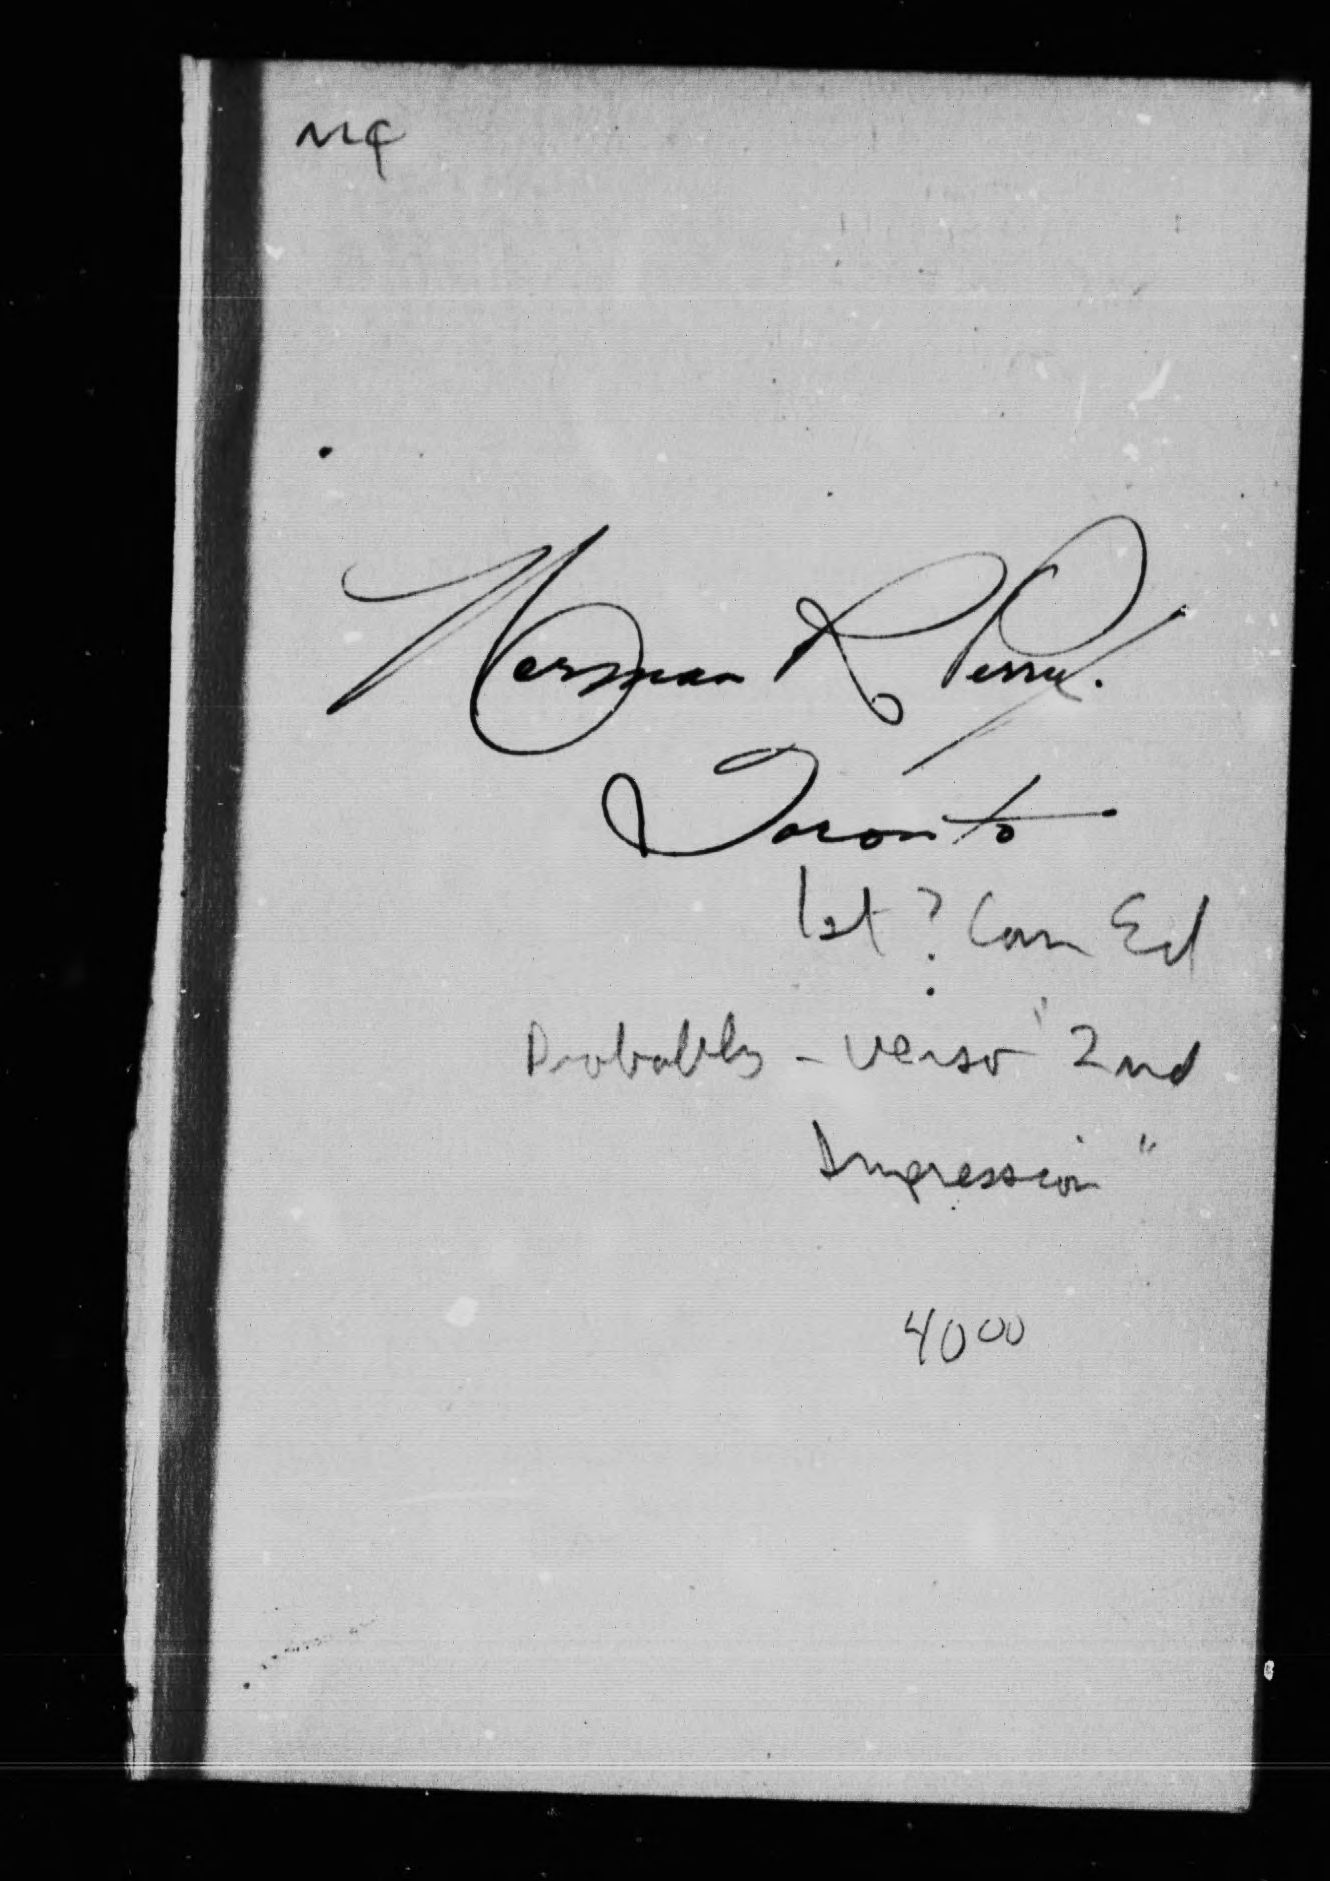 Norman R Perry.
Toronto
1st ? Can Ed
Probably - verso "2nd
Impression"
40 00